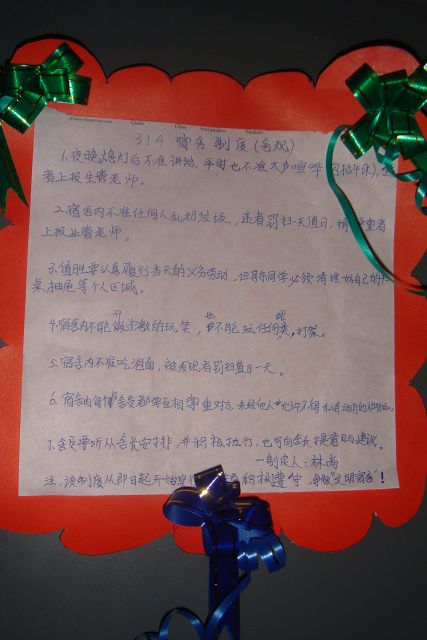 Grade Class Seat number Student
314 宿舍制度(舍规)
1.夜晚熄灯后不准讲话,平时也不准大声喧哗(包括午休),违
者上报生管老师。
2.宿舍内不准任何人乱扔垃圾,违者罚扫一天值日,情 重者
上报生管老师。
3.值日生要认真履行当天的义务劳动,但其余同学必须清理好自己的
桌抽屉等个人区域。
4.宿舍内不能开过激的玩笑,也不能玩任何 ,打架。
5.宿舍内不准吃泡面,被发现者罚扫值日一天。
6.宿舍内每个舍员都要互相尊重对方,未经他人允许不得私自动用他人物品。
7.舍员要听从舍长安排,并积极执行,也可向舍长提意见与建议。
—制定人:林尚
注:该制度从即日起开始实行 积极遵守,争取"文明宿舍"!